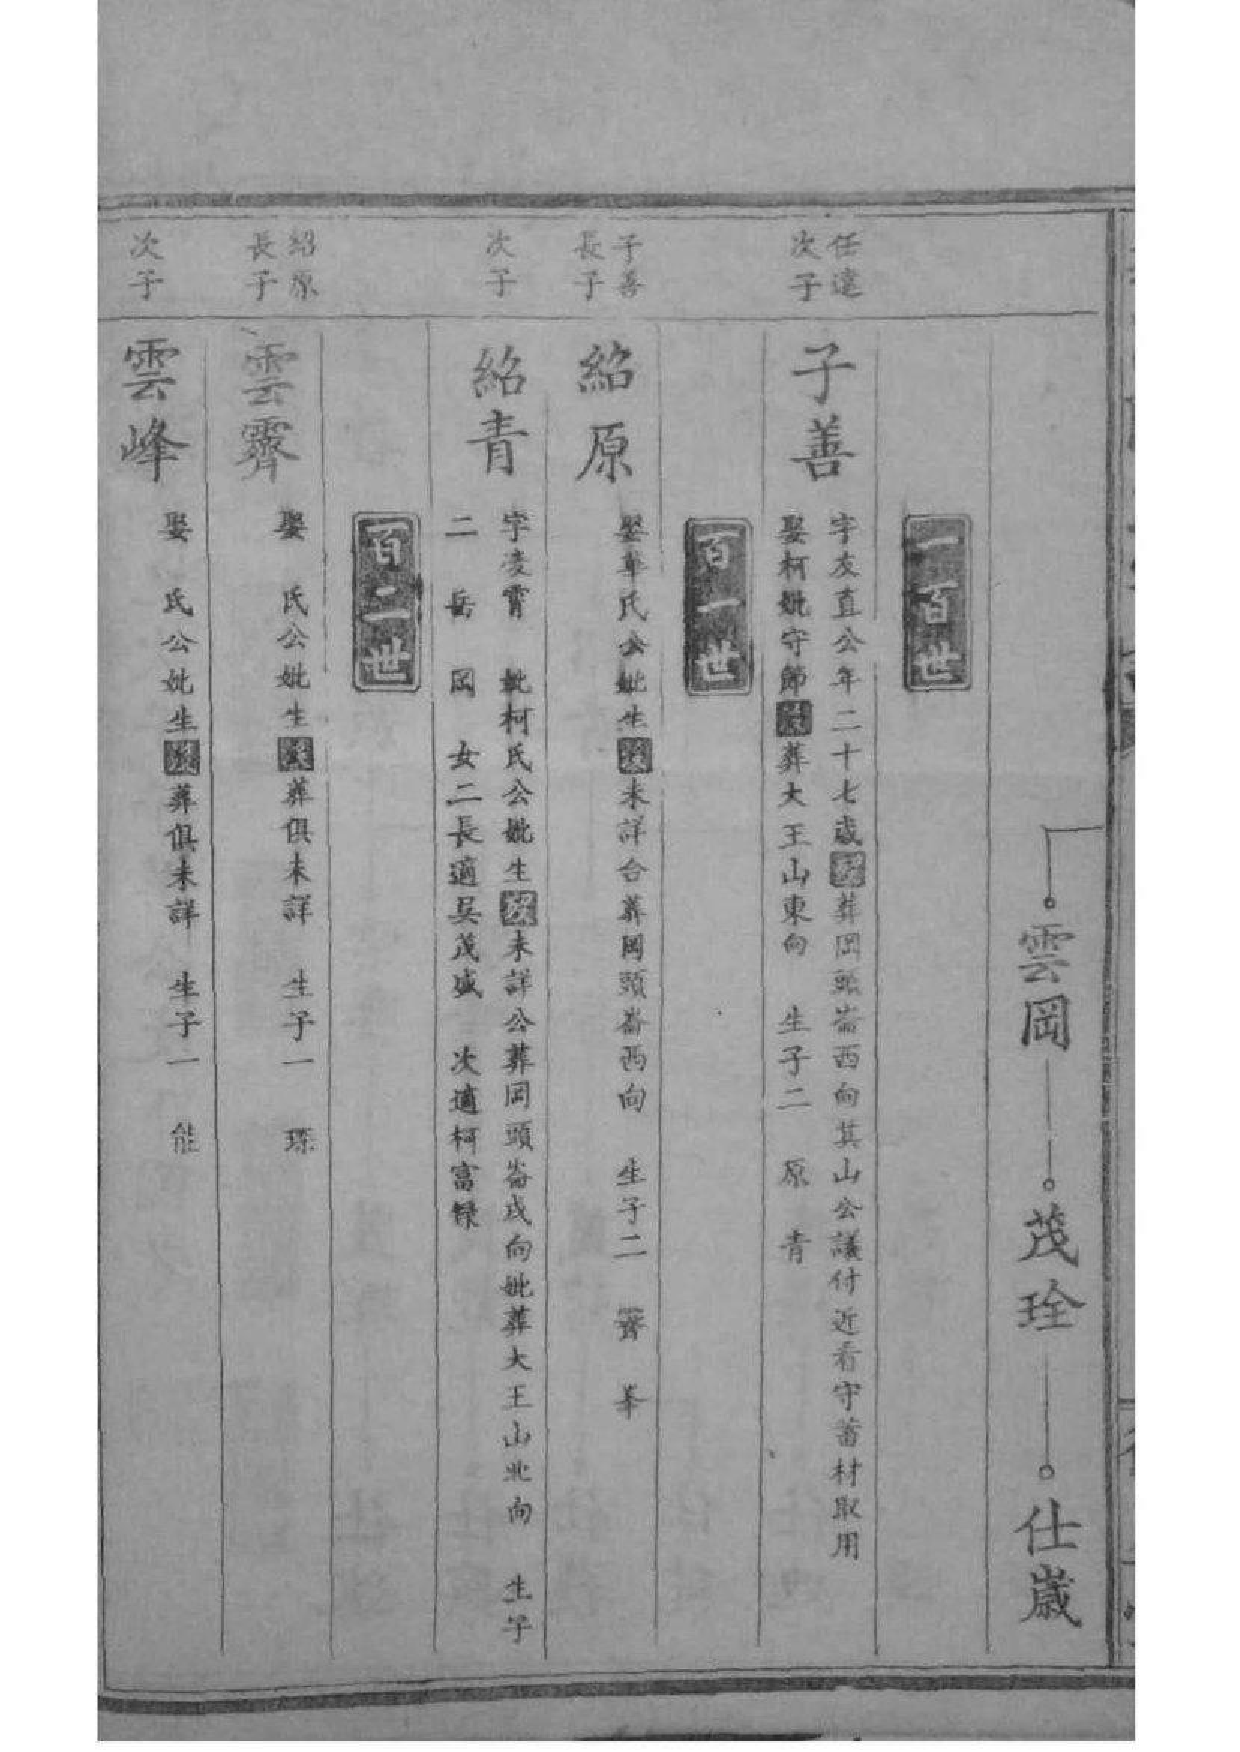 雲岡 茂琀 仕嵗
一百世
任達次子
子善
字友直公年二十七歲歿葬岡頭崙西向其山公議付近看守蓄材取用
娶柯妣守節葬大王山東向 生子二 原 青
百一世
子善長子
紹原
娶辜氏公妣生歿未詳合葬岡頭崙西向 生子二 霽 峯
次子
紹青
字凌霄 妣柯氏公妣生歿未詳公葬岡頭崙戌向妣葬大王山北向 生子
二 岳 岡 女二長適吳茂盛 次適柯富祿
百二世
紹原長子
雲霽
娶 氏公妣生歿葬俱未詳 生子一 琛
次子
雲峰
娶 氏公妣生歿葬俱未詳 生子一 能